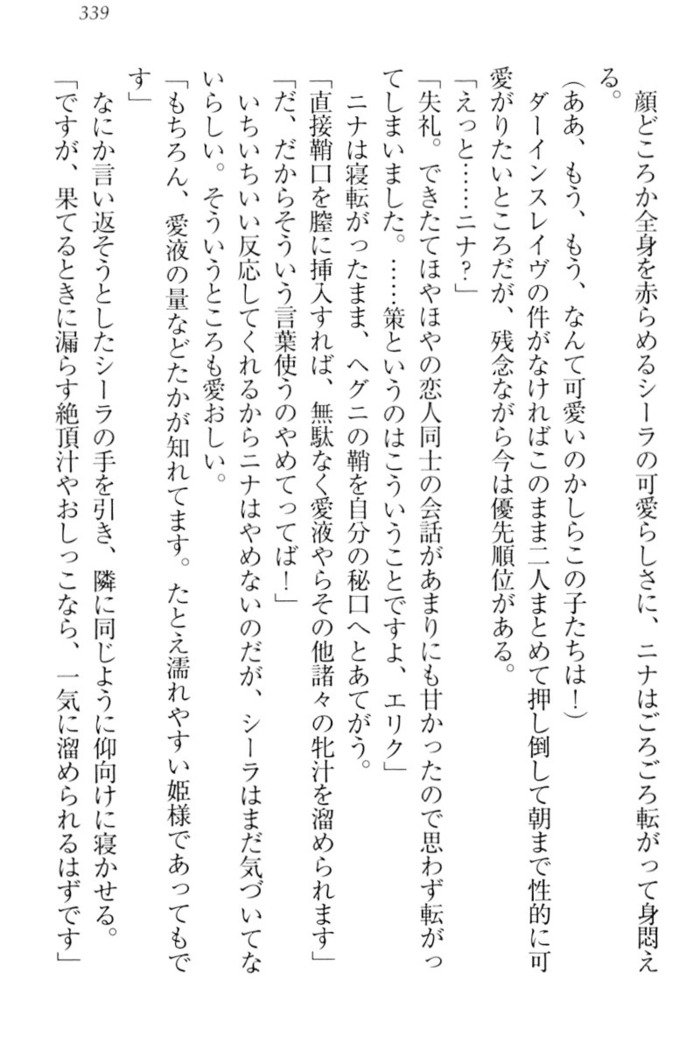 339
顔どころか全身を赤らめるシーラの可愛らしさに、ニナはごろごろ転がって身悶え
る。
(ああ、もう、もう、なんて可愛いのかしらこの子たちは！)
ダーインスレイヴの件がなければこのまま二人まとめて押し倒して朝まで性的に可
愛がりたいところだが、残念ながら今は優先順位がある。
「えっと……ニナ？」
「失礼。できたてほやほやの恋人同士の会話があまりにも甘かったので思わず転がっ
てしまいました。……策というのはこういうことですよ、エリク」
ニナは寝転がったまま、ヘグニの鞘を自分の秘口へとあてがう。
「直接鞘口を膣に挿入すれば、無駄なく愛液やらその他諸々の牝汁を溜められます」
「だ、だからそういう言葉使うのやめてってば！」
いちいちいい反応してくれるからニナはやめないのだが、シーラはまだ気づいてな
いらしい。そういうところも愛おしい。
「もちろん、愛液の量などたかが知れてます。たとえ濡れやすい姫様であってもで
す」
なにか言い返そうとしたシーラの手を引き、隣に同じように仰向けに寝かせる。
「ですが、果てるときに漏らす絶頂汁やおしっこなら、一気に溜められるはずです」